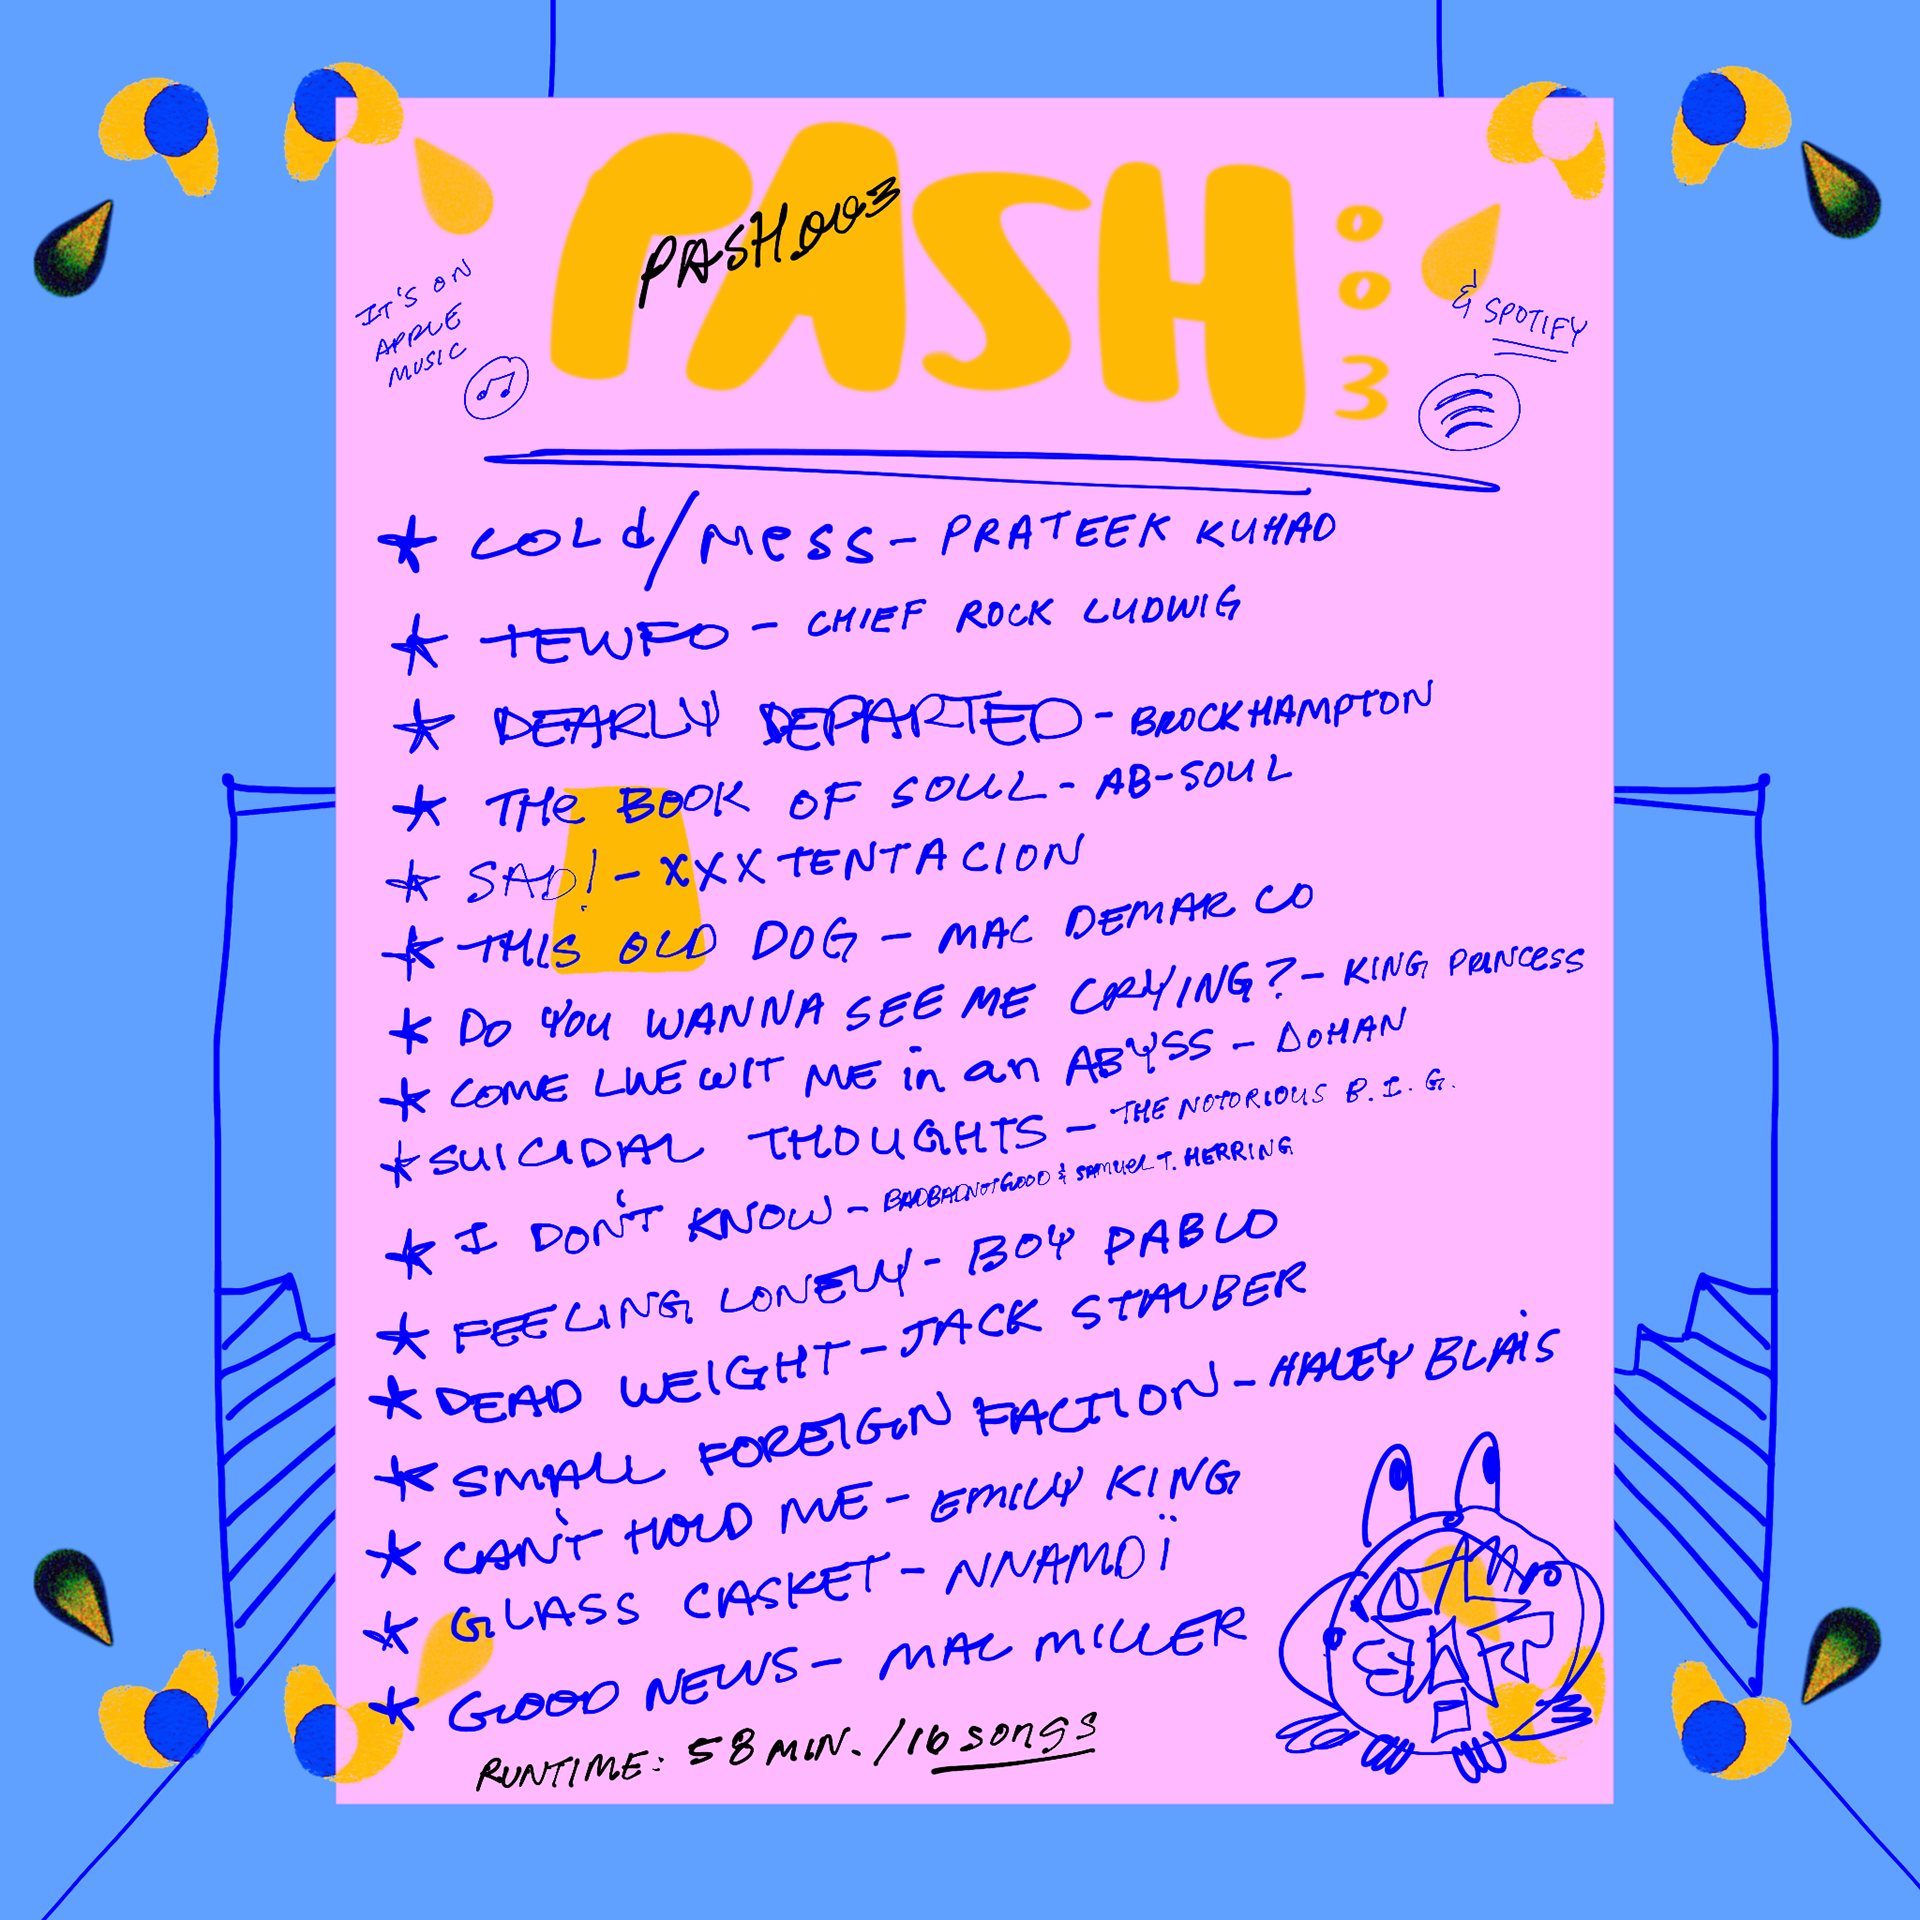 PASH
003
PASH003
IT'S ON
APPLE
MUSIC
& SPOTIFY
COLd/MESS - PRATEEK KUHAD
TEWFO - CHIEF ROCK LUDWIG
DEARLY DEPARTED - BROCKHAMPTON
THE BOOK OF SOUL - AB-SOUL
SAD! - XXXTENTACION
THIS OLD DOG - MAC DEMARCO
DO YOU WANNA SEE ME CRYING? - KING PRINCESS
COME LIVE WIT ME in an ABYSS - DOHAN
SUICIDAL THOUGHTS - THE NOTORIOUS B.I.G.
I DON'T KNOW - BADBADNOTGOOD & SAMUEL T. HERRING
FEELING LONELY - BOY PABLO
DEAD WEIGHT - JACK STAUBER
SMALL FOREIGN FACTION - HALEY BLAIS
CAN'T HOLD ME - EMILY KING
GLASS CASKET - NNAMDÏ
GOOD NEWS - MAC MILLER
RUNTIME: 58 MIN. / 16 SONGS